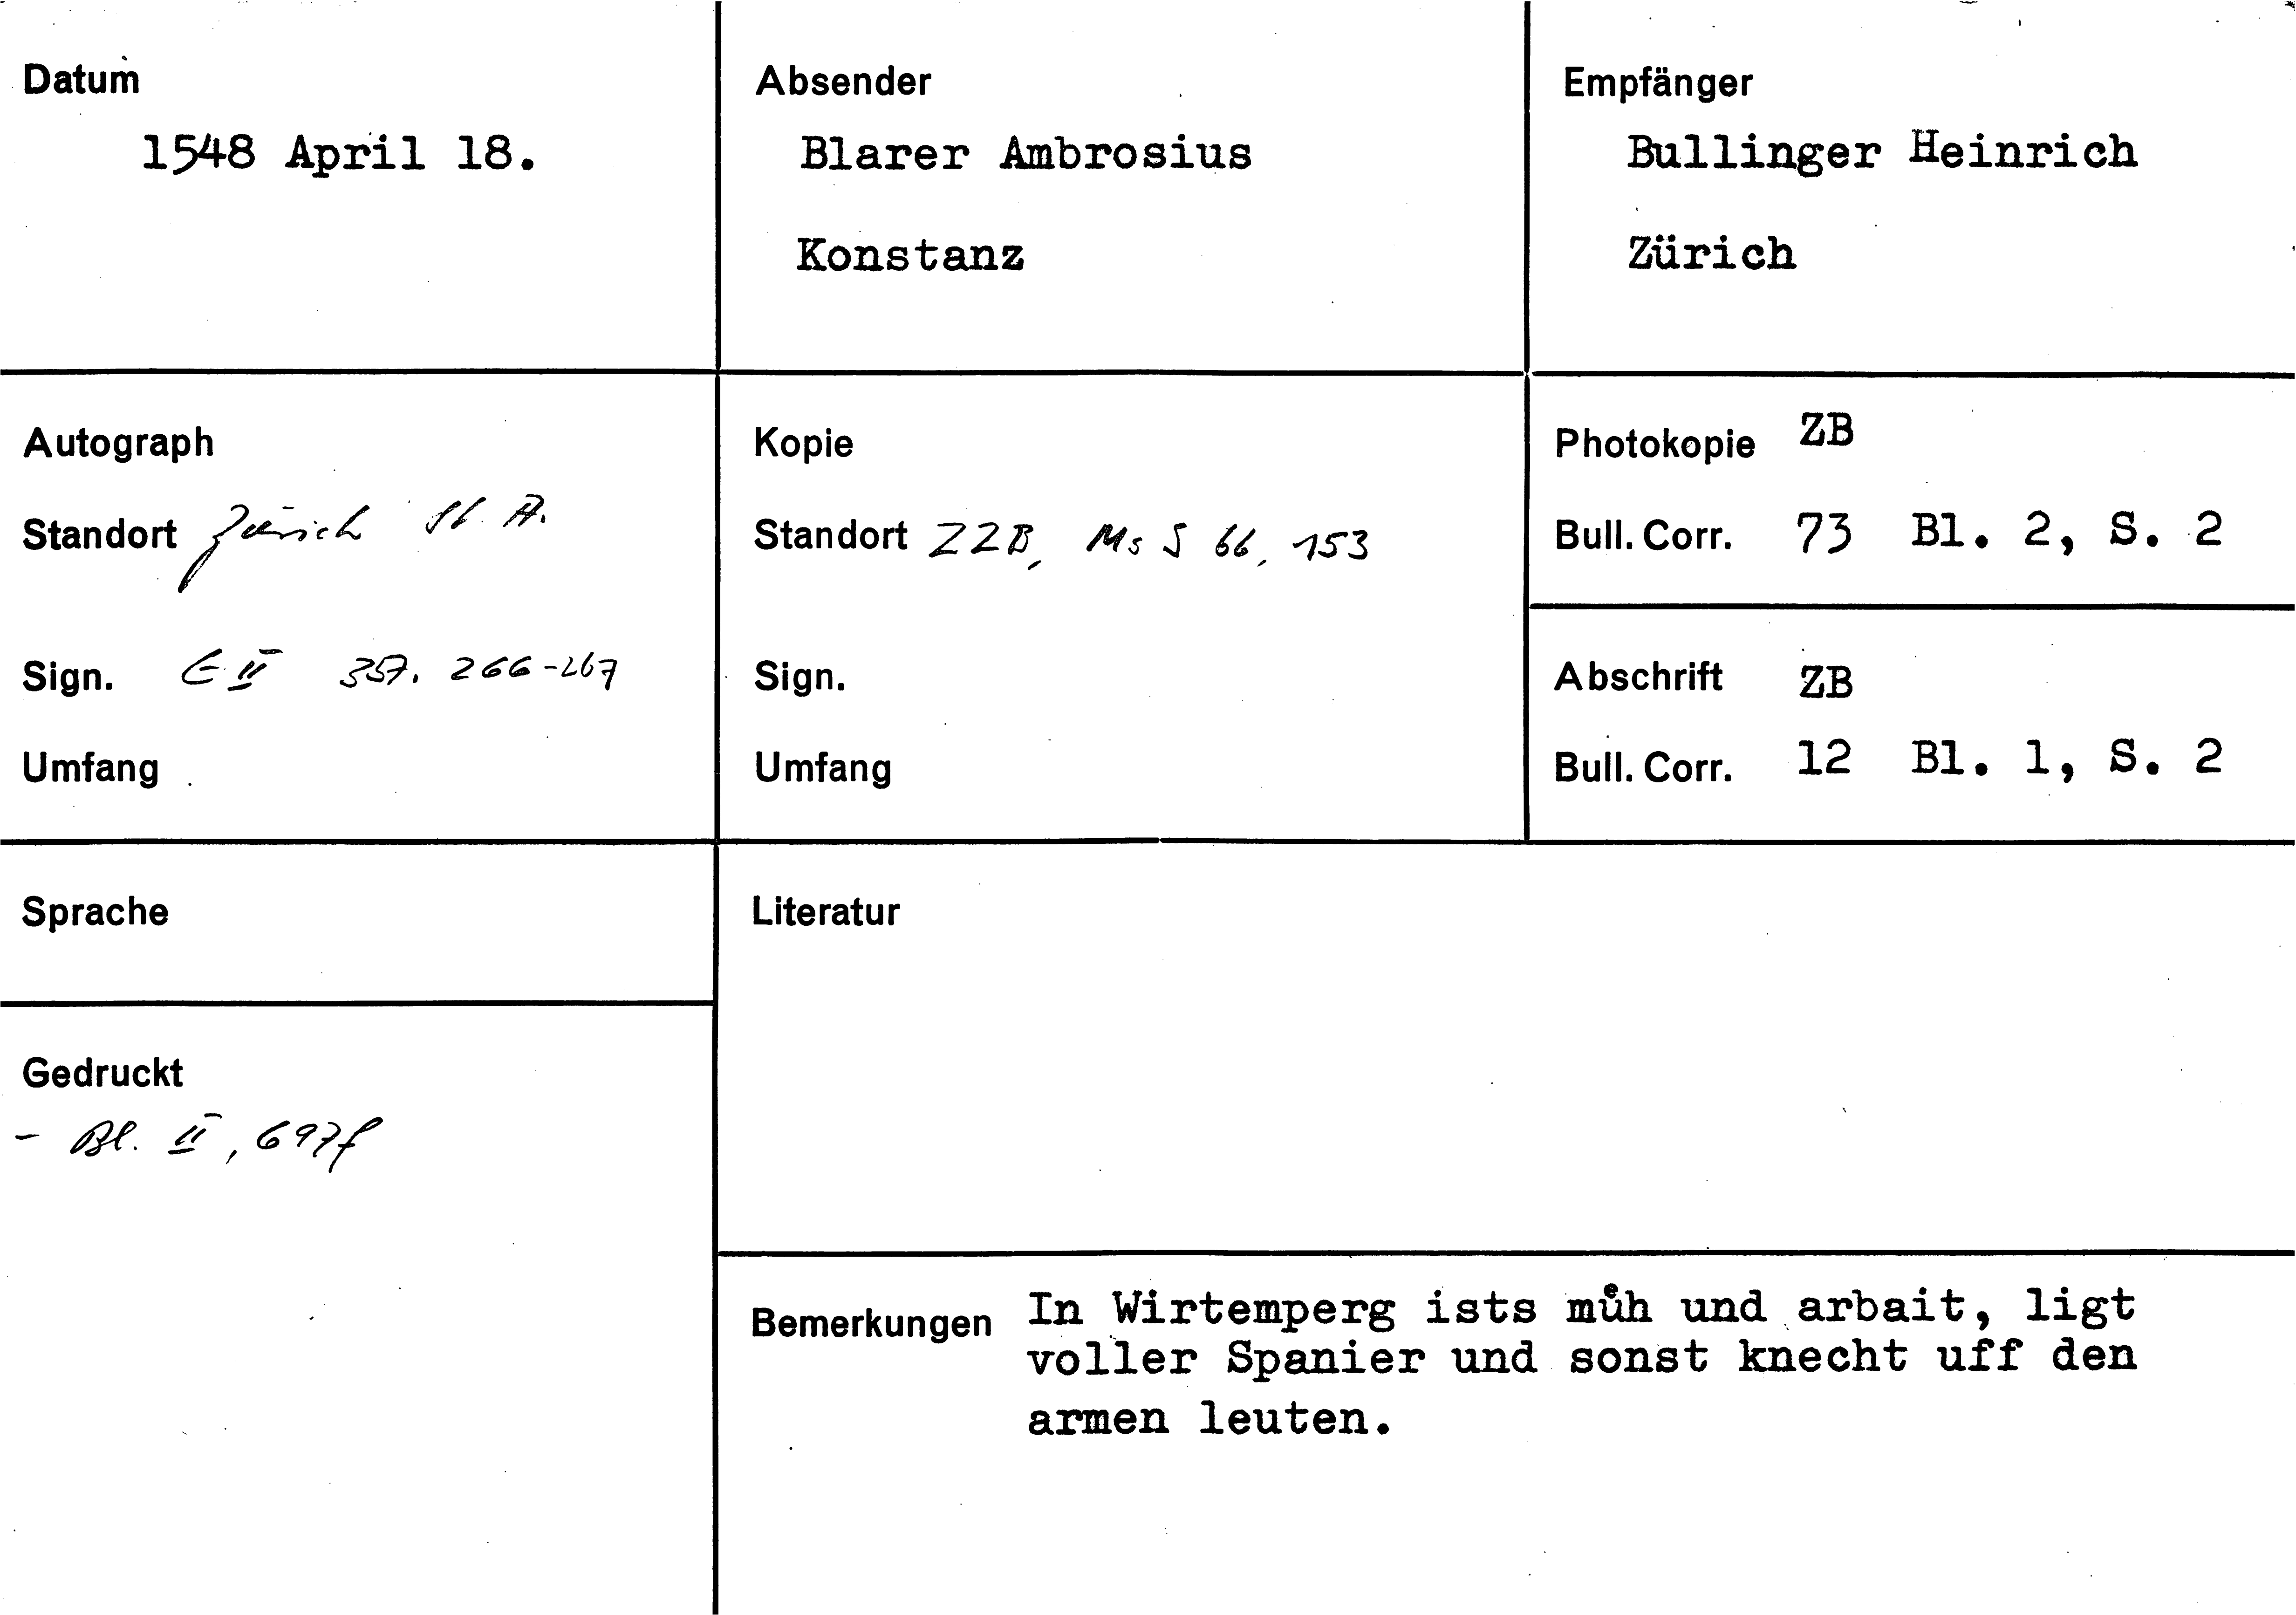 Datum
1548 April 18.
Absender
Blarer Ambrosius
Konstanz
Empfänger
Bullinger Heinrich
Zürich
Autograph
Standort Zürich St. A.
Sign. E II 357. 266-267
Umfang
Kopie
Standort ZZB, Ms S 66, 153
Sign.
Umfang
Photokopie ZB
Bull. Corr. 73 Bl. 2, S. 2
Abschrift ZB
Bull. Corr. 12 Bl. 1, S. 2
Sprache
Gedruckt
- Bl. II, 697f
Literatur
Bemerkungen In Wirtemperg ists muͤh und arbait, ligt
voller Spanier und sonst knecht uff den
armen leuten.